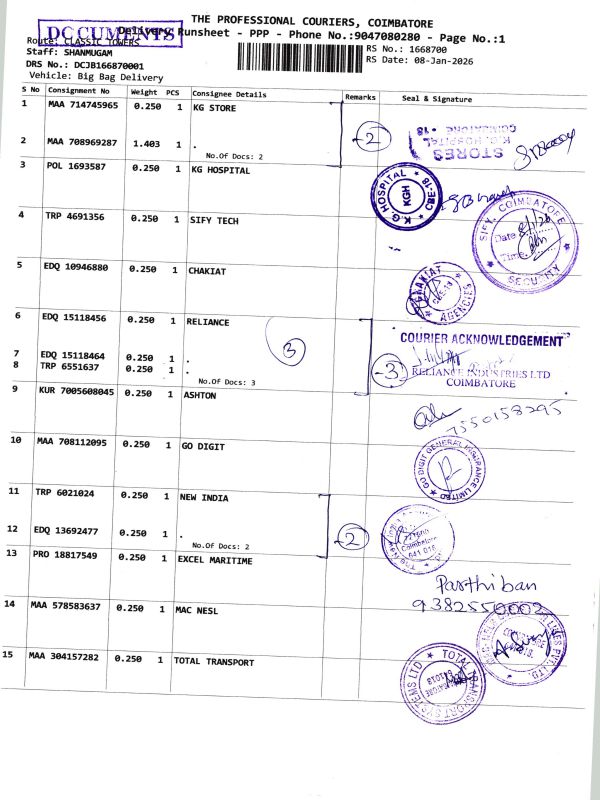 THE PROFESSIONAL COURIERS, COIMBATORE
DOCUMENTS
Delivery Runsheet - PPP - Phone No.:9047080280 - Page No.:1
Route: CLASSIC TOWERS
Staff: SHANMUGAM
DRS No.: DCJB166870001
Vehicle: Big Bag Delivery
RS No.: 1668700
RS Date: 08-Jan-2026
S No Consignment No Weight PCS Consignee Details Remarks Seal & Signature
1 MAA 714745965 0.250 1 KG STORE
2 MAA 708969287 1.403 1 .
No.Of Docs: 2
-2
STORES
K.G. HOSPITAL
COIMBATORE - 18
3 POL 1693587 0.250 1 KG HOSPITAL
KG HOSPITAL CBE-18
KGH
4 TRP 4691356 0.250 1 SIFY TECH
SIFY, COIMBATORE
Date 8/1/26
Time
SECURITY
5 EDQ 10946880 0.250 1 CHAKIAT
CHAKIAT AGENCIES
6 EDQ 15118456 0.250 1 RELIANCE
7 EDQ 15118464 0.250 1 .
8 TRP 6551637 0.250 1 .
No.Of Docs: 3
3
-3
COURIER ACKNOWLEDGEMENT
RELIANCE INDUSTRIES LTD
COIMBATORE
9 KUR 7005608045 0.250 1 ASHTON
7550158295
10 MAA 708112095 0.250 1 GO DIGIT
GO DIGIT GENERAL INSURANCE LIMITED
11 TRP 6021024 0.250 1 NEW INDIA
12 EDQ 13692477 0.250 1 .
No.Of Docs: 2
-2
Coimbatore
641 018
13 PRO 18817549 0.250 1 EXCEL MARITIME
Parthiban
9382550002
14 MAA 578583637 0.250 1 MAC NESL
LINES PVT. LTD.
15 MAA 304157282 0.250 1 TOTAL TRANSPORT
TOTAL TRANSPORT SYSTEMS LTD